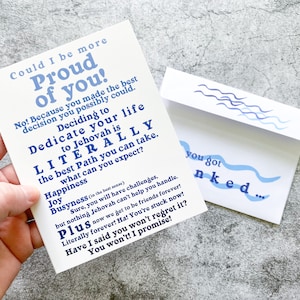 Could I be more
Proud
of you!
No! Because you made the best
decision you possibly could.
Deciding to
Dedicate your life
to Jehovah is
LITERALLY
the best Path you can take.
what can you expect?
Happiness
Joy
Busyness (in the best sense)
Sure, you will have challenges,
but nothing Jehovah can't help you handle.
Plus now we get to be friends forever!
Literally forever! Ha! You're stuck now!
Have I said you won't regret it?
You won't! I promise!
you got
nked...